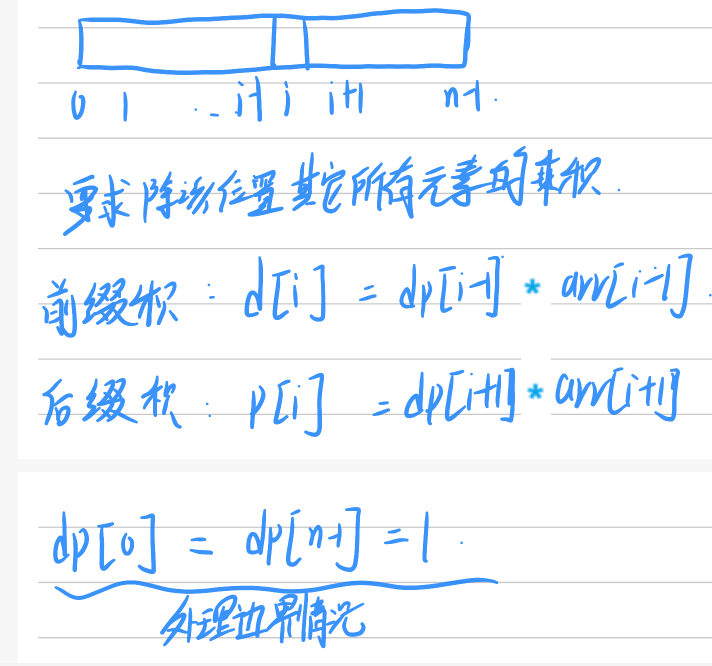 0 1 .. i-1 i i+1 n-1.
要求除该位置其它所有元素的乘积.
前缀积: d[i] = dp[i-1] * arr[i-1].
后缀积: p[i] = dp[i+1] * arr[i+1]
dp[0] = dp[n-1] = 1.
处理边界情况